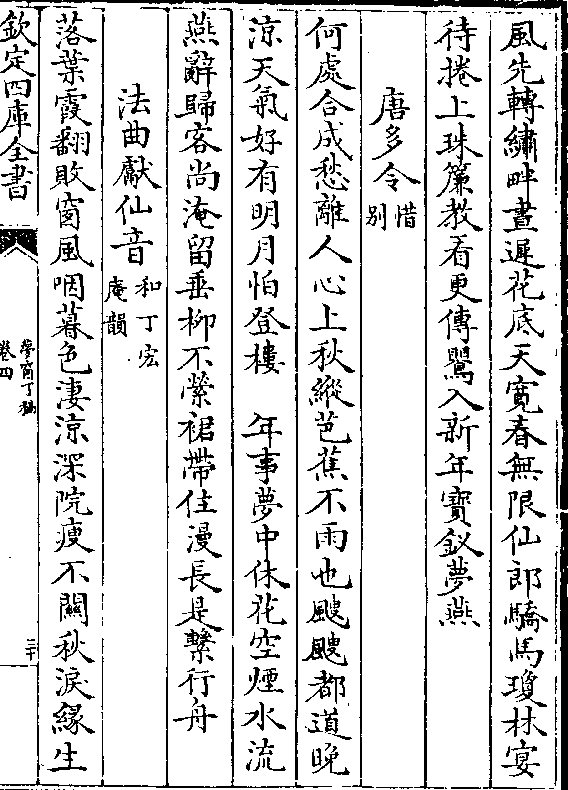 風先轉繡畔晝遲花底天寛春無限仙郎驕馬瓊林宴
待捲上珠簾教看更傳鶯入新年寶釵夢燕
唐多令惜别
何處合成愁離人心上秋縱芭蕉不雨也颼颼都道晚
涼天氣好有明月怕登樓　年事夢中休花空煙水流
燕辭歸客尚淹留垂柳不縈裙帶住漫長是繫行舟
法曲獻仙音和丁宏庵韻
落葉霞翻敗窗風咽暮色淒涼深院瘦不關秋淚緣生
欽定四庫全書
夢窗丁稿
卷四
三十